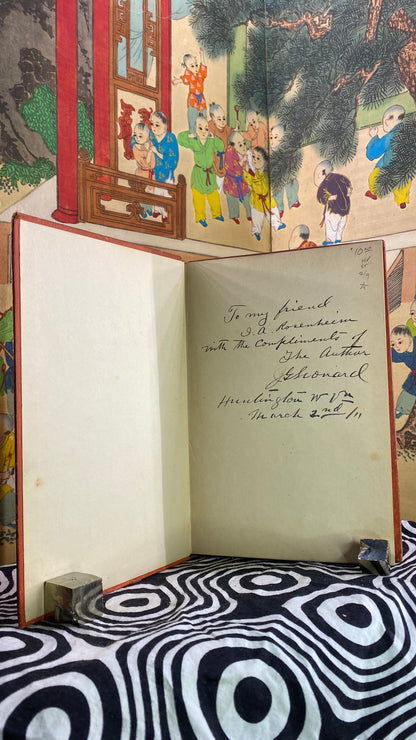 $10.00
To my friend
I. A. Rosenheim
with the Compliments of
The Author
J G Leonard
Huntington W Va
March 2nd /11